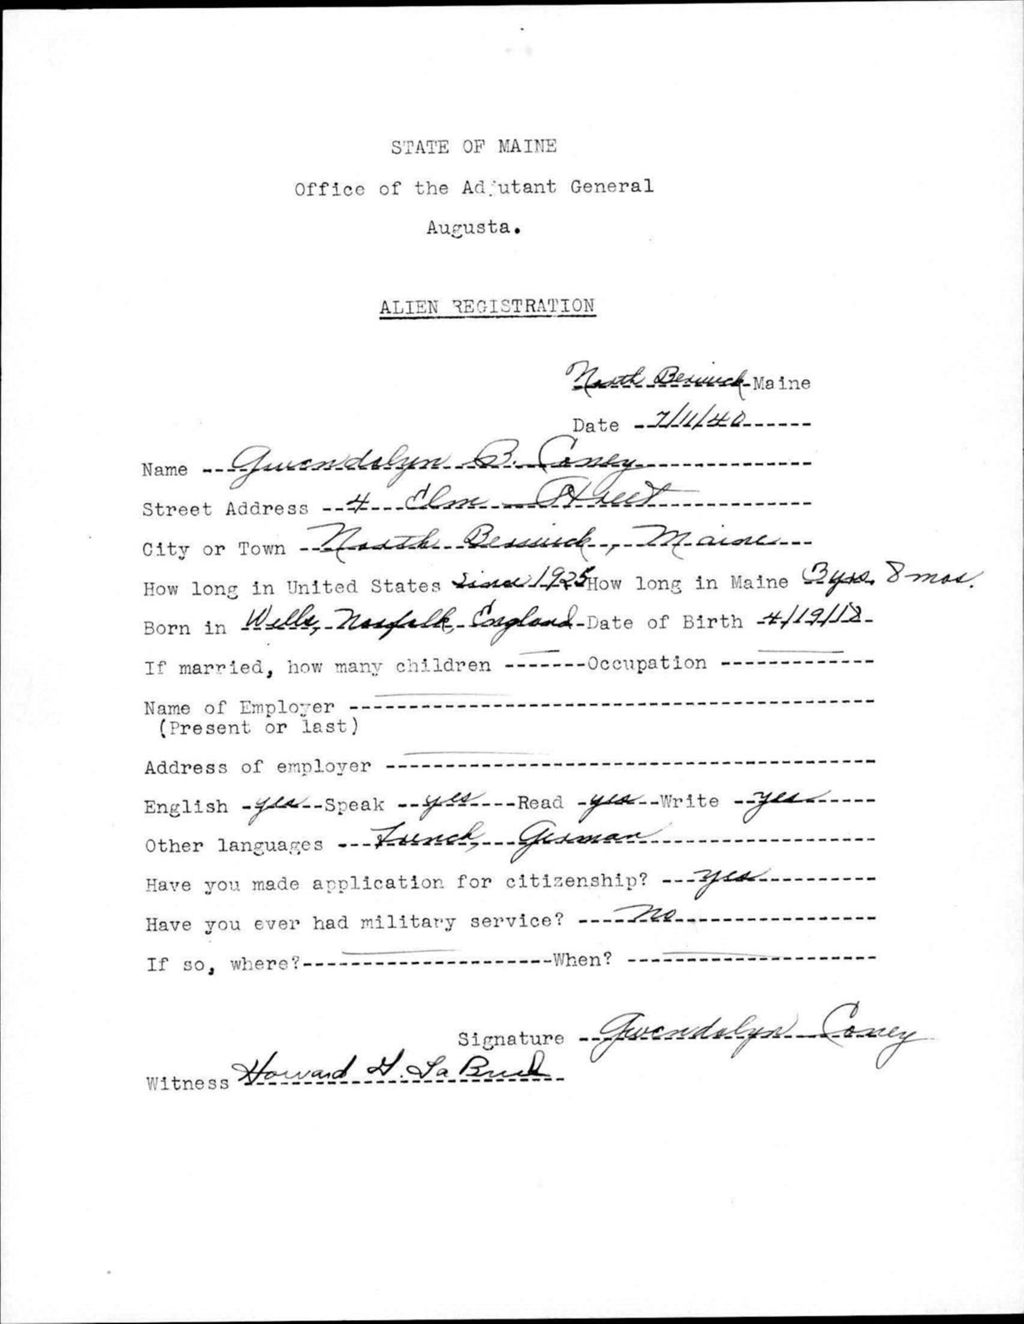 STATE OF MAINE
Office of the Adjutant General
Augusta.
ALIEN REGISTRATION
North Berwick Maine
Date 7/11/40
Name Gwendolyn B. Coney
Street Address 4 Elm Street
City or Town North Berwick, Maine
How long in United States Since 1925 How long in Maine 3 yrs. 8 mos.
Born in Wells, Norfolk, England Date of Birth 4/19/18
If married, how many children Occupation
Name of Employer
(Present or last)
Address of employer
English yes Speak yes Read yes Write yes
Other languages French, German
Have you made application for citizenship? yes
Have you ever had military service? no
If so, where? When?
Signature Gwendolyn Coney
Witness Howard H. La